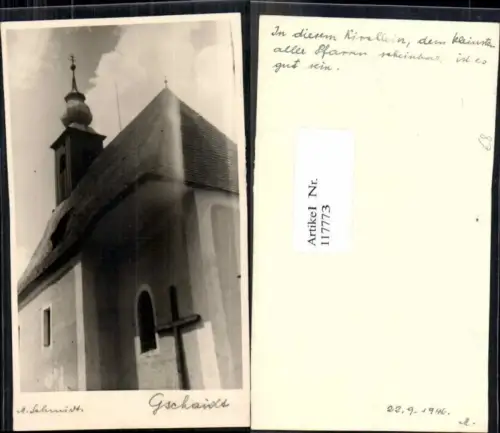 A. Schmidt.
Gschaidt
In diesem Kirchlein, dem kleinsten
aller Pfarren scheinbar, ist es
gut sein.
Artikel Nr.
117773
22.9.1946.